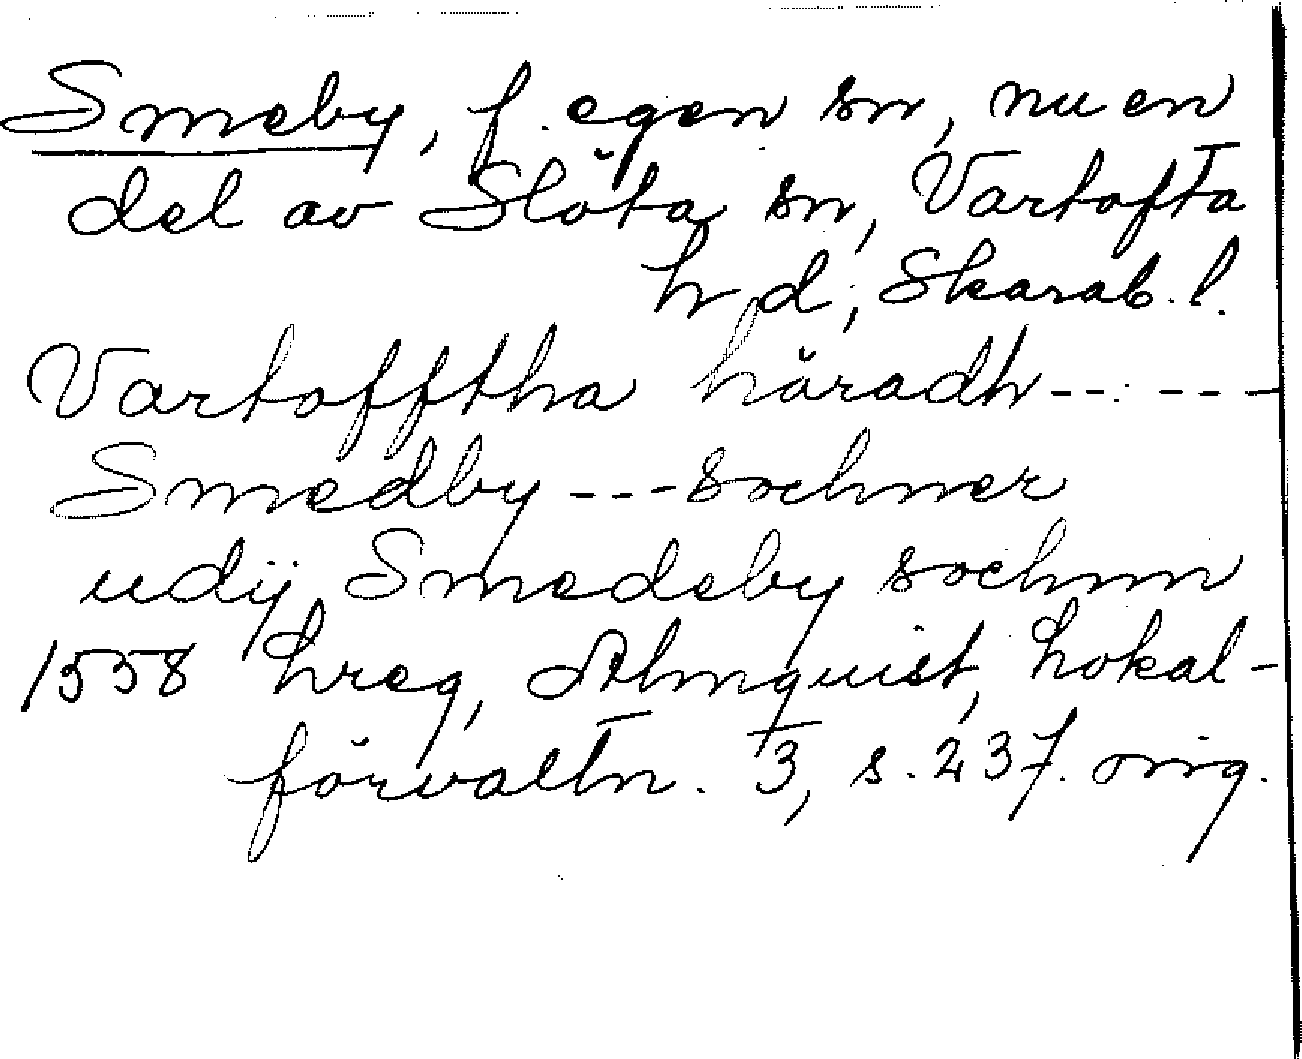 Smeby, f. egen sn, nu en
del av Slöta sn, Vartofta
hd, Skarab. l.
Vartofftha häradh -- - ---
Smedby --- sochner
udij Smedeby sochnn
1558 hreg, Almquist, Lokal-
förvaltn. 3, s. 237. orig.